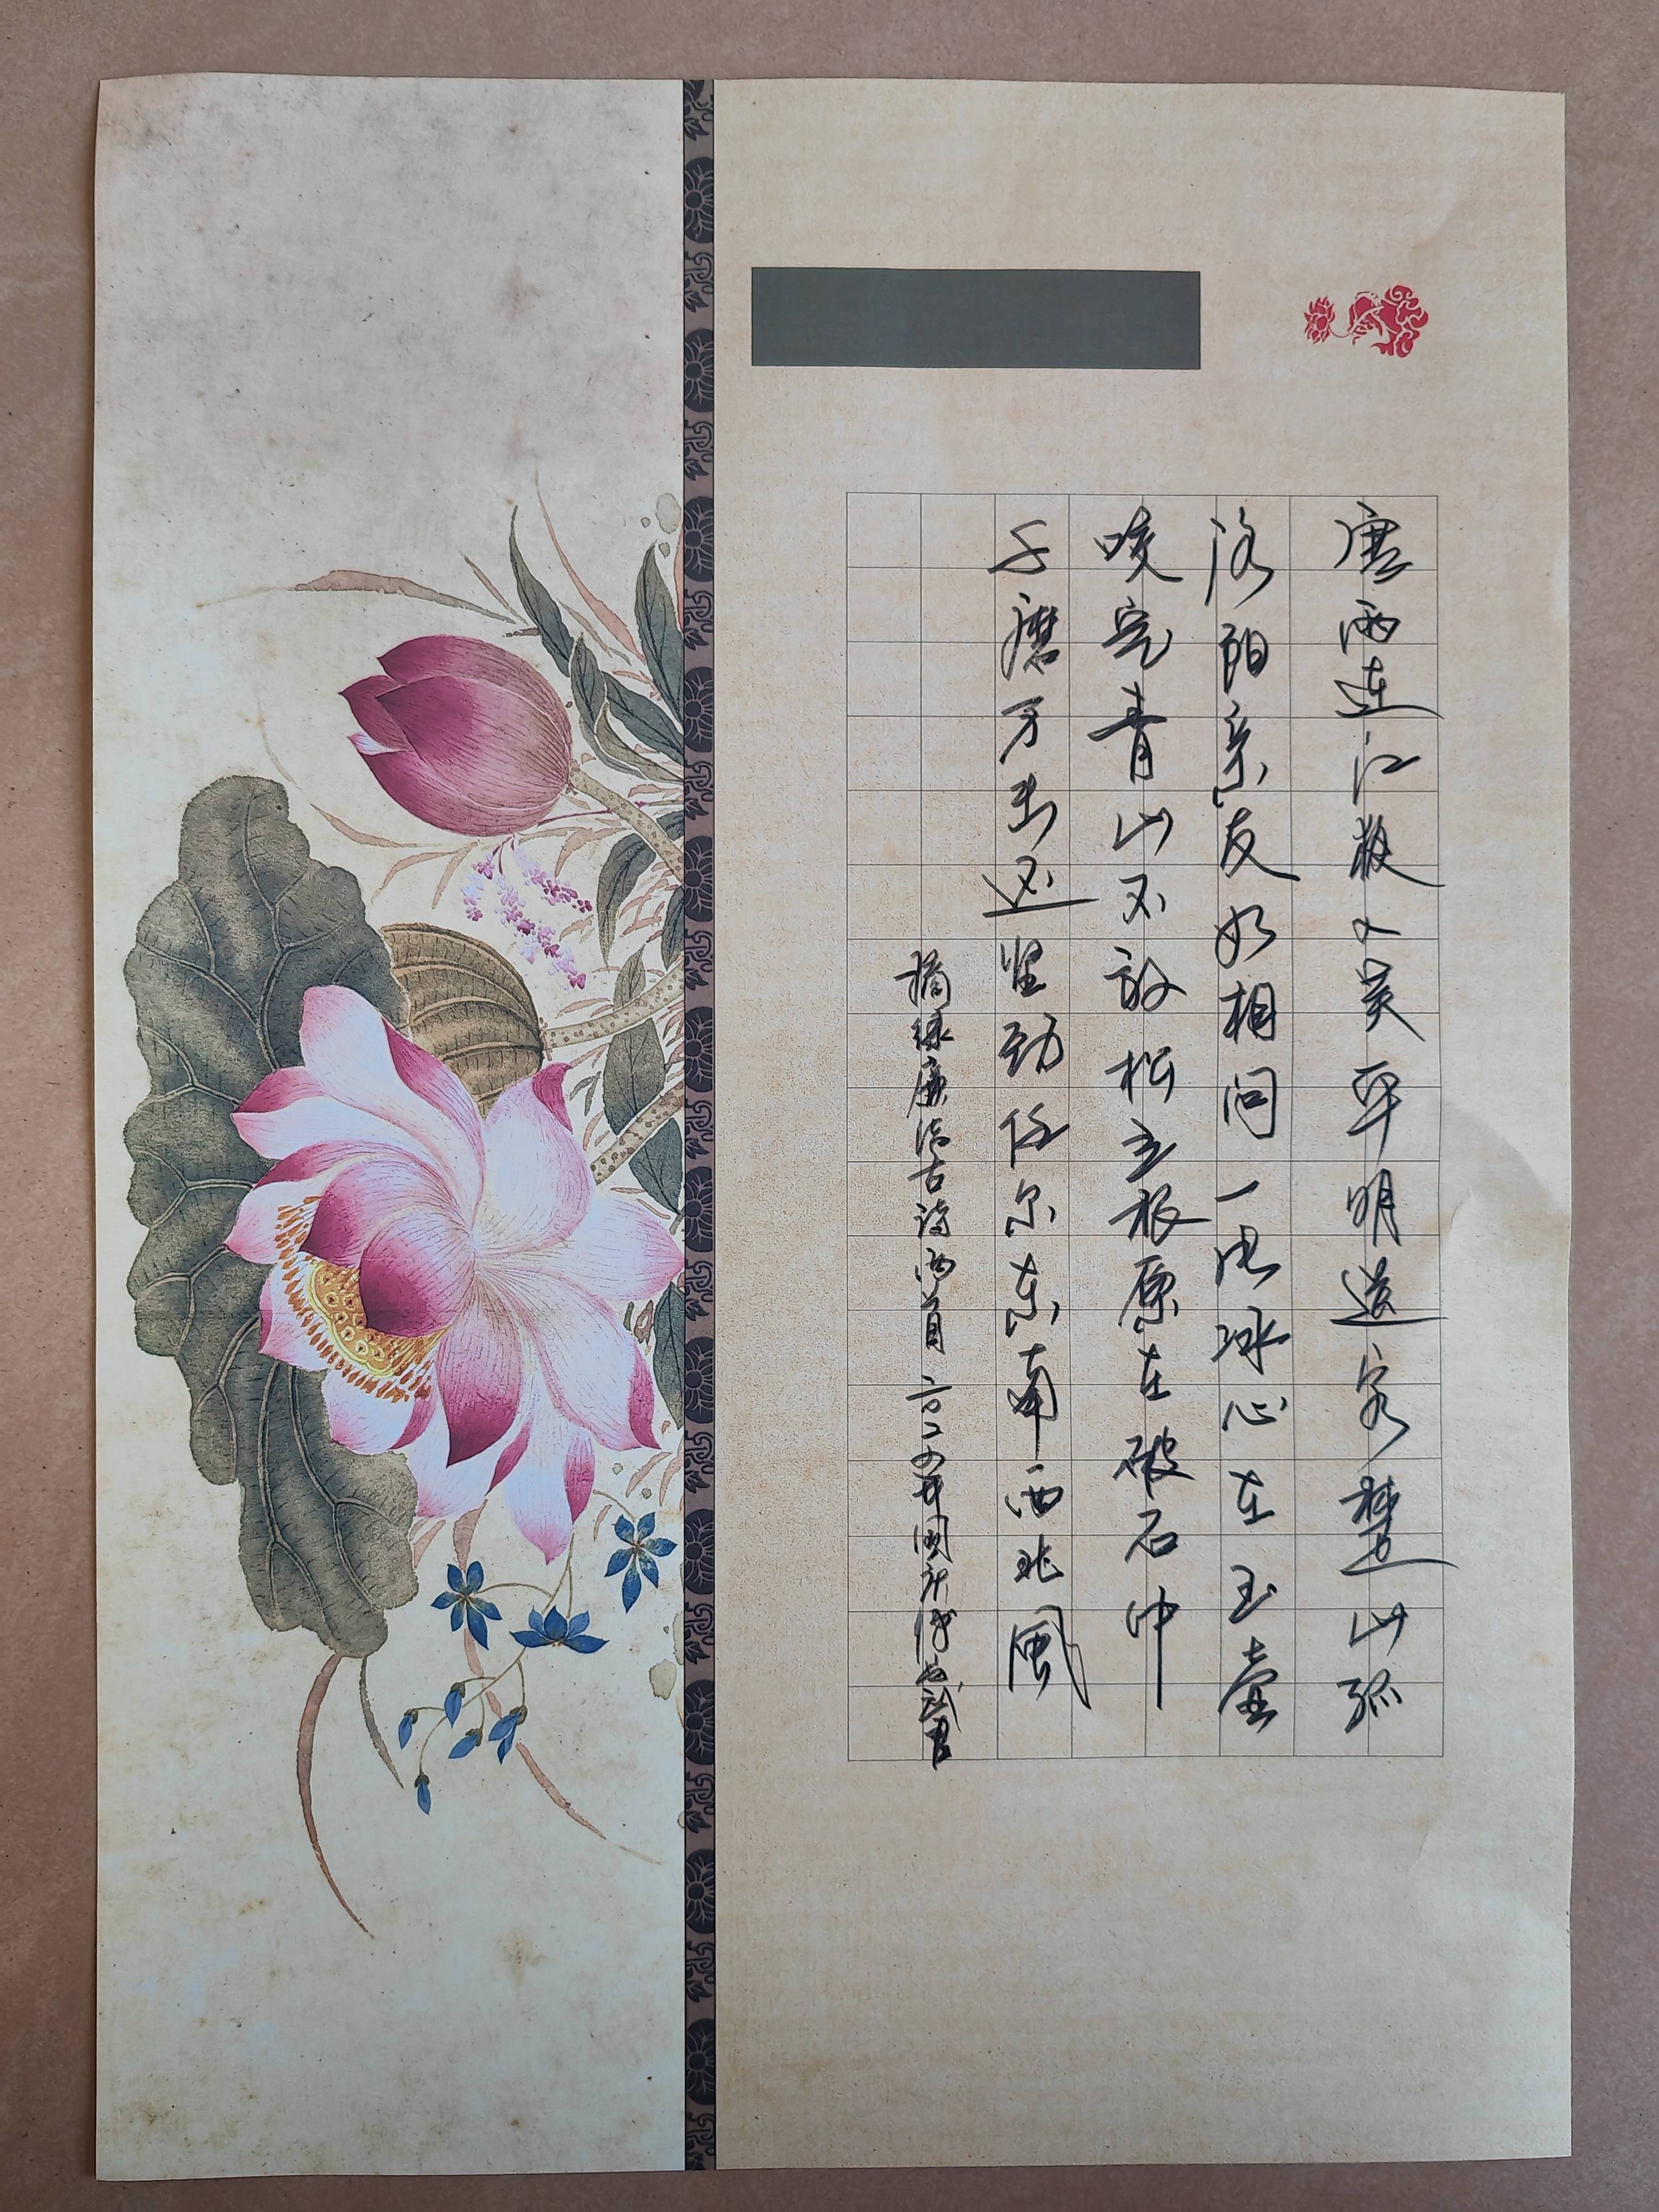 寒雨连江夜入吴平明送客楚山孤
洛阳亲友如相问一片冰心在玉壶
咬定青山不放松立根原在破石中
千磨万击还坚劲任尔东南西北风
摘录廉洁古诗两首 二〇二年国庆书